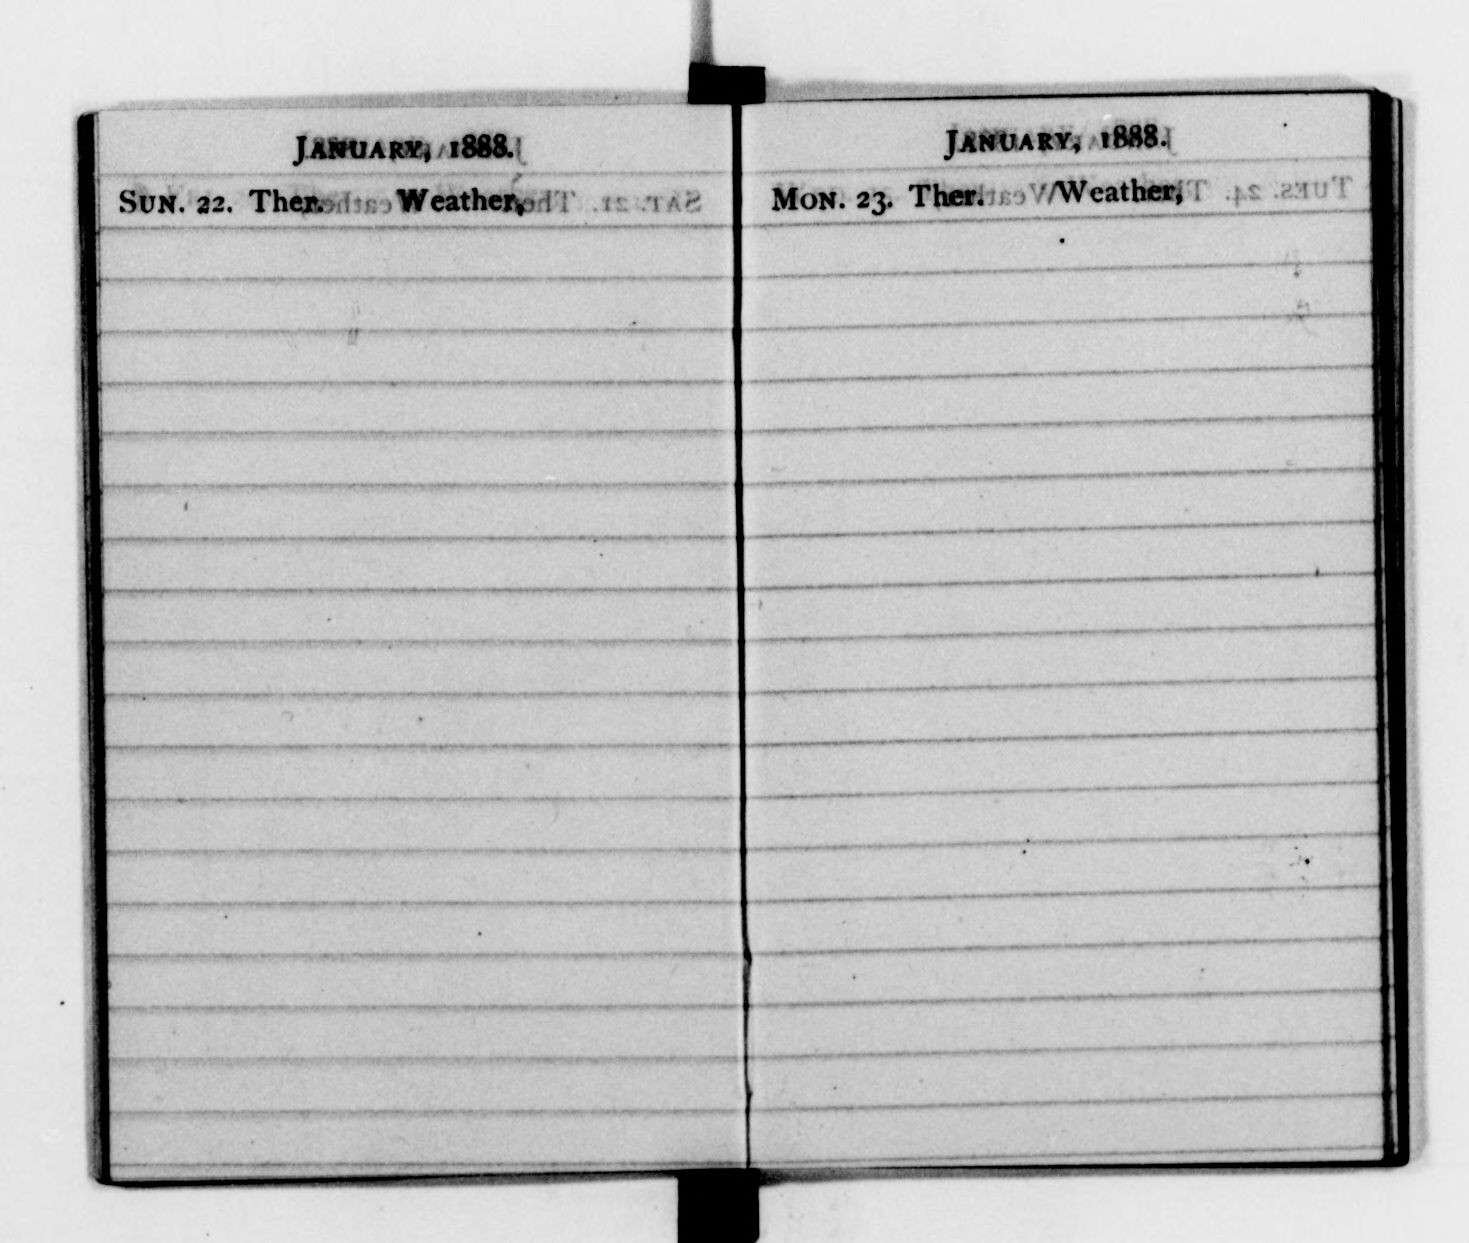 January, 1888.
Sun. 22. Ther. Weather,
January, 1888.
Mon. 23. Ther. Weather,